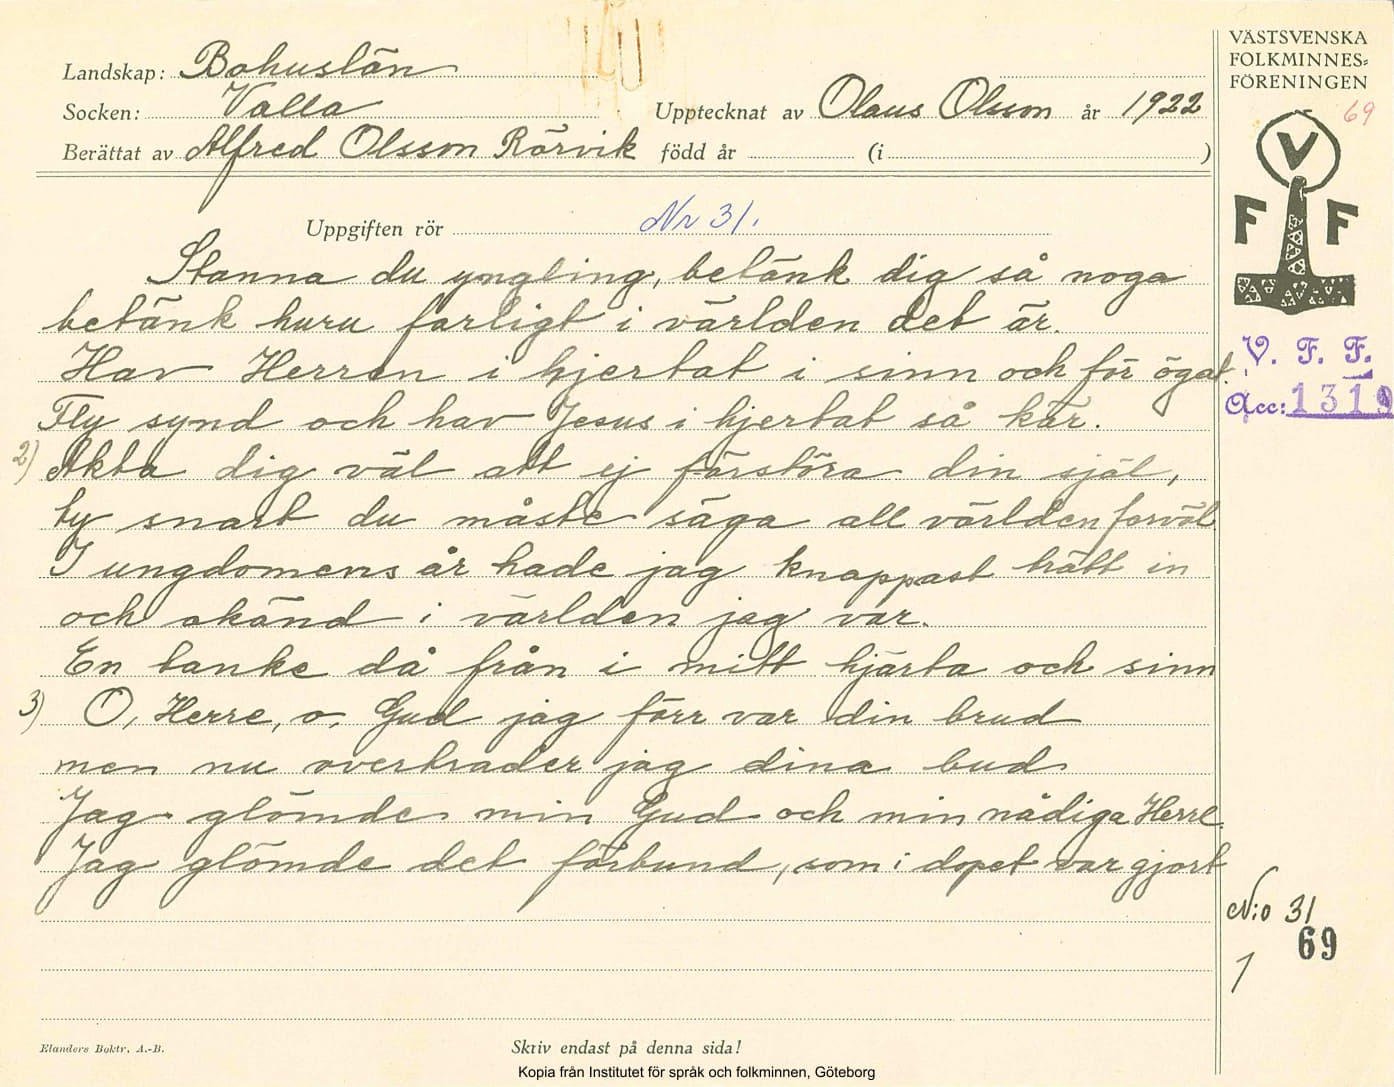 Landskap: Bohuslän
Socken: Valla
Upptecknat av Olaus Olsson år 1922
Berättat av Alfred Olsson Rörvik född år (i )
VÄSTSVENSKA
FOLKMINNES-
FÖRENINGEN
69
V
F F
Uppgiften rör Nr 31.
Stanna du yngling, betänk dig så noga
betänk huru farligt i världen det är.
Hav Herren i hjertat i sinn och för ögat.
Fly synd och hav Jesus i hjertat så kär.
2) Akta dig väl att ej förstöra din själ,
ty snart du måste säga all världen farväl
I ungdomens år hade jag knappast trätt in
och okänd i världen jag var.
En tanke då från i mitt hjärta och sinn
3) O, Herre, o, Gud jag förr var din brud
men nu overtrader jag dina bud
Jag glömde min Gud och min nådiga Herre.
Jag glömde det förbund, som i dopet var gjort
V. F. F.
Acc: 1319
N:o 31
69
1
Elanders Boktr. A.-B.
Skriv endast på denna sida!
Kopia från Institutet för språk och folkminnen, Göteborg